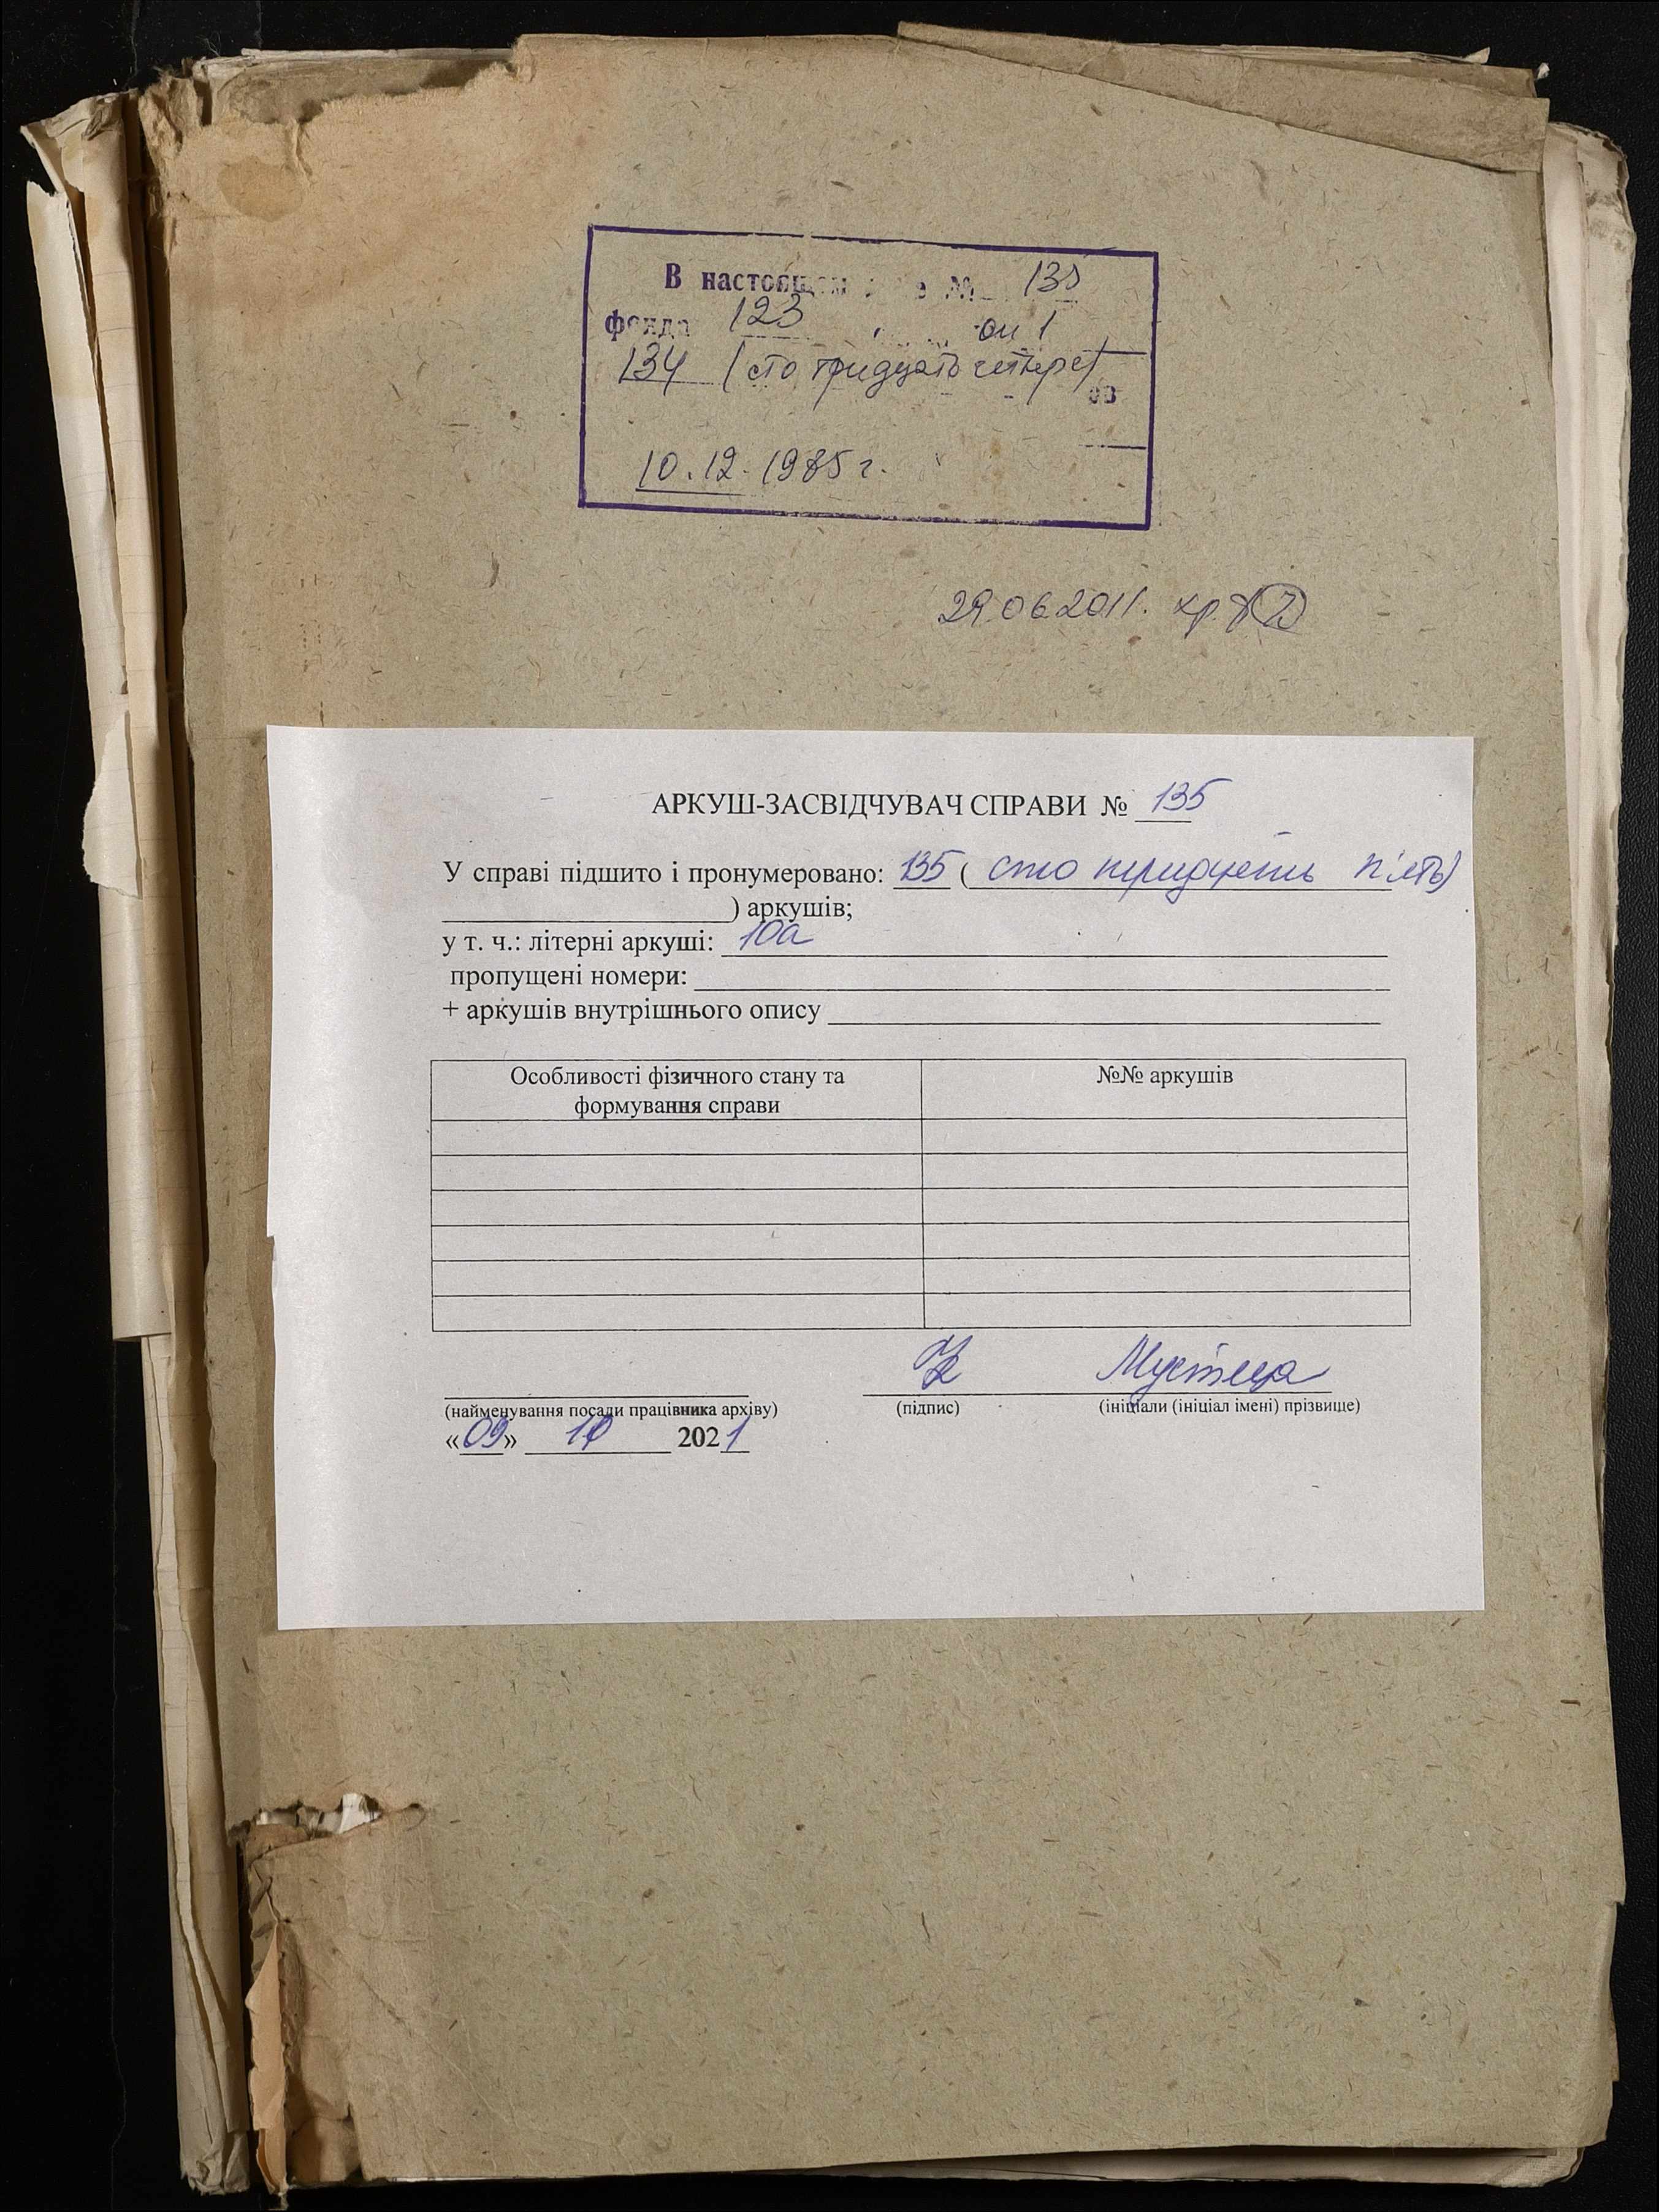 В настоящем деле № 135
фонда 123 оп 1
134 (сто тридцать четыре)
ов
10.12.1985 г.
29.06.2011.
АРКУШ-ЗАСВІДЧУВАЧ СПРАВИ № 135
У справі підшито і пронумеровано: 135 (сто тридцять п'ять)
) аркушів;
у т. ч.: літерні аркуші: 10а
пропущені номери:
+ аркушів внутрішнього опису
Особливості фізичного стану та №№ аркушів
формування справи
Мустеца
(найменування посади працівника архіву) (підпис) (ініціали (ініціал імені) прізвище)
«09» 10 2021